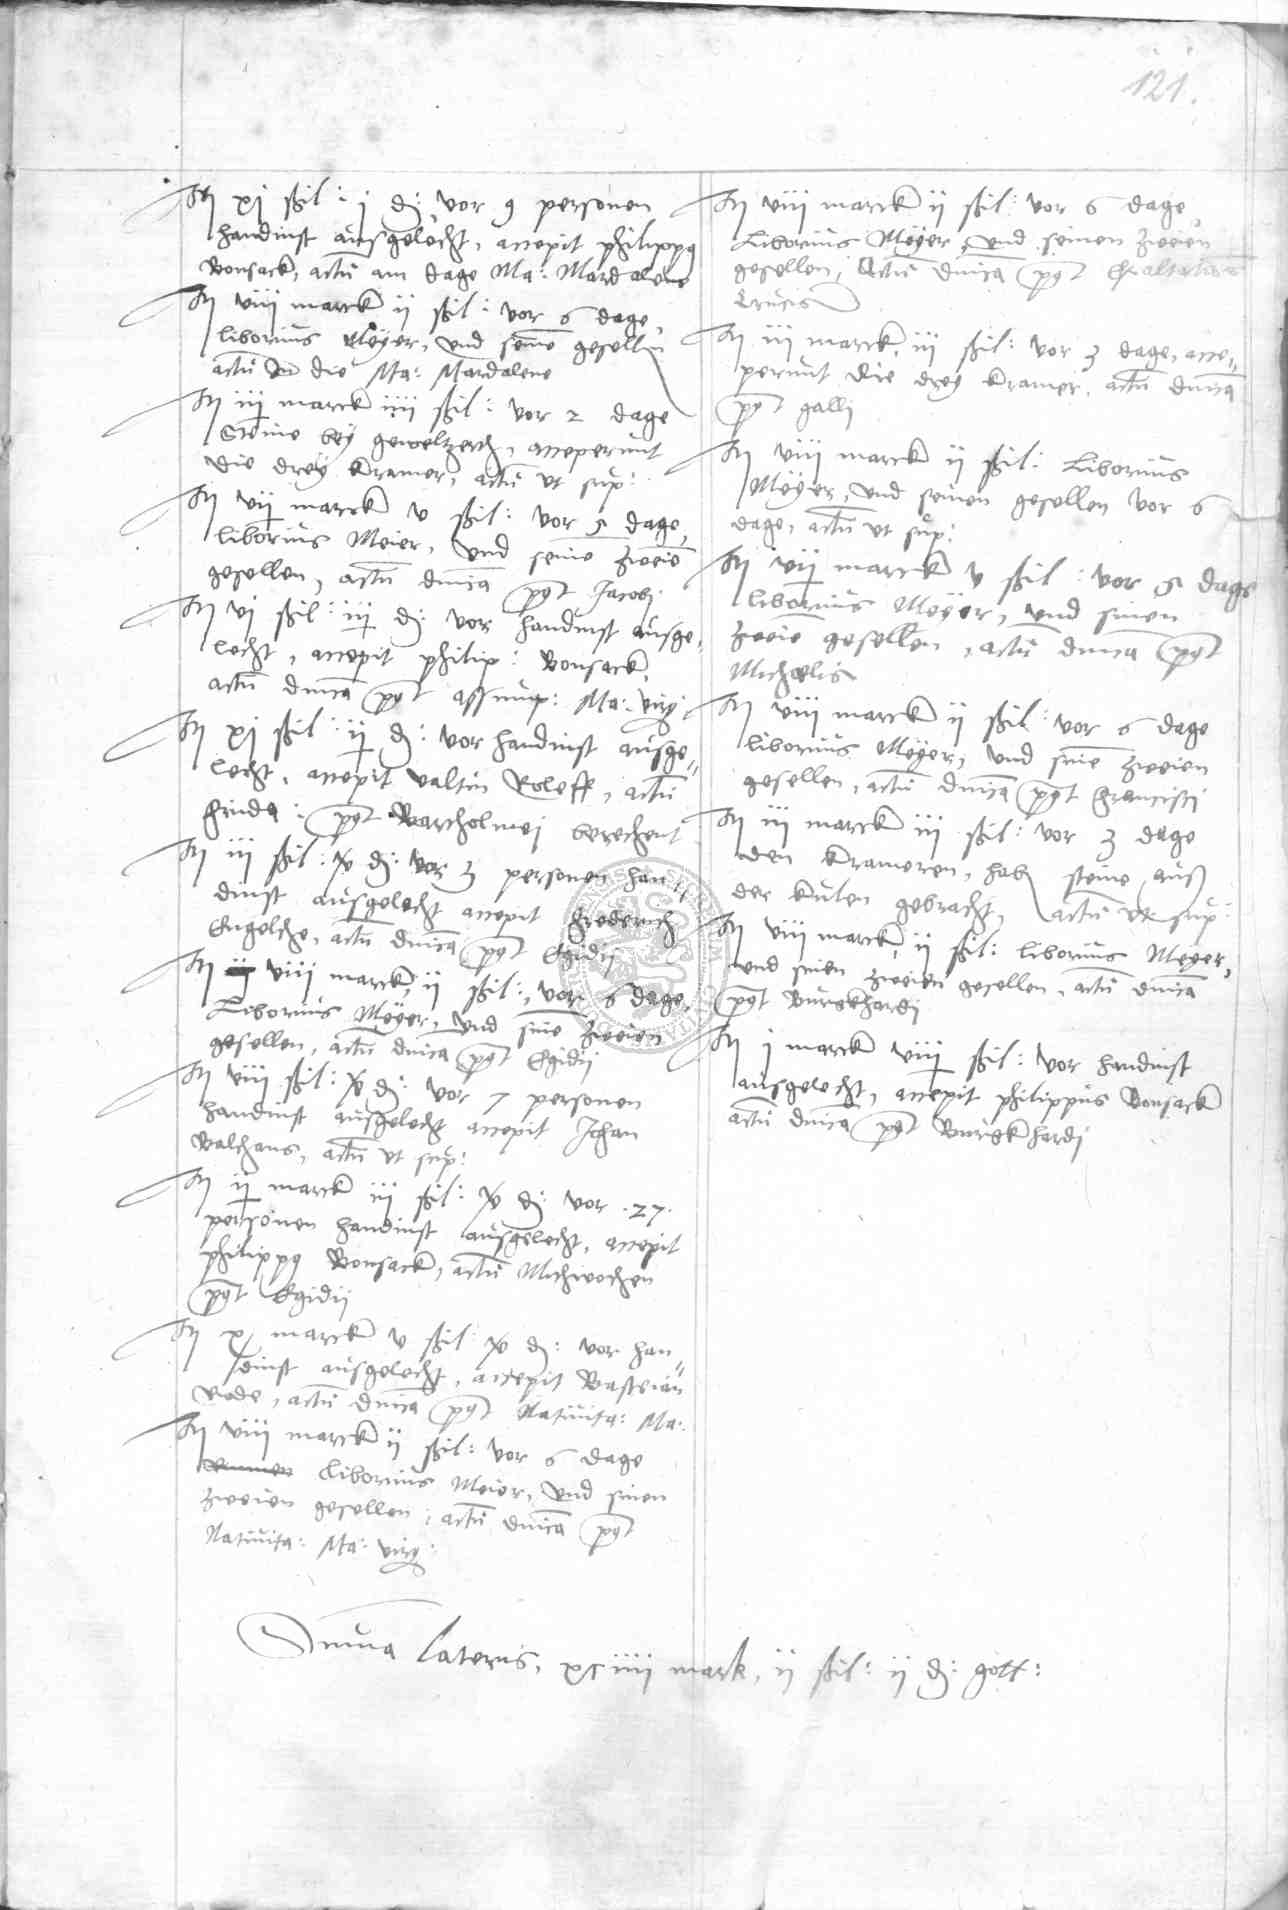 121.
It xj ßil: j d: vor 9 personen
handinst ausgelecht, accepit philippg
Bonsack, actū am dage Ma: Mardalene
It viii marck ii ßil: vor 6 dage,
liborius Meyer, und seine gesellen
actū die Ma: Mardalene
It iij marck iiii ßil: vor 2 dage
Steine bey acceperunt
die drey kramer, actū ut sup:
It vij marck v ßil: vor 5 dage,
liborius Meier, und seine zweie
gesellen, actū dnica pgt Jacobj
It vj ßil: iij d: vor handinst ausge-
lecht, accepit philip: Bonsack,
actū dnica pgt assump: Ma: virg
It xj ßil: ij d: vor handinst ausge-
lecht, accepit valtin Roleff, actū
pgt Barcholmej berechent
It iii ßil: d: vor 3 personen han-
dinst ausgelecht accepit frederich
Engelche, actū dnica pgt Egidij
It viii marck, ii ßil:, vor 6 dage,
Liborius Meyer, und sine zweien
gesellen, actū dnica pgt Egidij
It viii ßil: d: vor 7 personen
handinst ausgelecht accepit Johan
Balhans, actū ut sup:
It ij marck iii ßil: d: vor .27.
personen handinst ausgelecht, accepit
philippg Bonsack, actū Michwochen
pgt Egidij
It x marck v ßil: d: vor han-
dinst ausgelecht, accepit Bastian
Rode, actū dnica pgt Nativita: Ma:
It viii marck ii ßil: vor 6 dage
Liborius Meier, und sinen
zweien gesellen, actū dnica pgt
Nativita: Ma: virg:
It viii marck ii ßil: vor 6 dage,
Liborius Meyer, und seinen zweien
gesellen, Actū dnica pgt Exaltationis
Crucis
It iii marck, iii ßil: vor 3 dage, acce-
perunt die drey kramer, actū dnica
pgt galli
It viii marck ii ßil: Liborius
Meyer, und seinen gesellen vor 6
dage, actū ut sup:
It vij marck v ßil: vor 5 dage
liborius Meyer, und sinen
zweie gesellen, actū dnica pgt
Michælis
It viii marck ii ßil: vor 6 dage
liborius Meyer, und sine zweien
gesellen, actū dnica pgt Francisci
It iii marck iii ßil: vor 3 dage
den krameren, hab steine auß
der kulen gebracht, actū ut sup:
It viii marck, ii ßil: liborius Meyer,
und sinen zweien gesellen, actū dnica
pgt Burgkhardj
It j marck viij ßil: vor handinst
ausgelecht, accepit philippus Bonsack
actū dnica pgt Burgkhardj
Suma lateris, xciiii mark, ij ßil: ij d: gott: